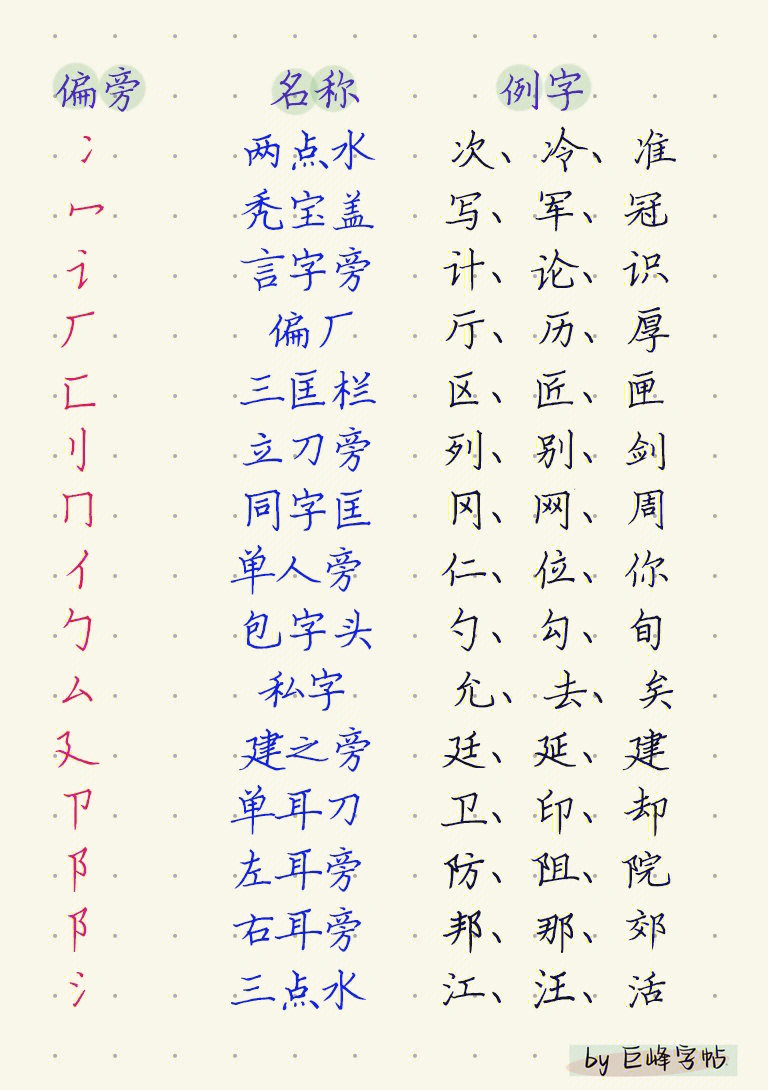 偏旁 名称 例字
冫 两点水 次、冷、准
冖 秃宝盖 写、军、冠
讠 言字旁 计、论、识
厂 偏厂 厅、历、厚
匚 三匡栏 区、匠、匣
刂 立刀旁 列、别、剑
冂 同字匡 冈、网、周
亻 单人旁 仁、位、你
勹 包字头 勺、勾、旬
厶 私字 允、去、矣
廴 建之旁 廷、延、建
卩 单耳刀 卫、印、却
阝 左耳旁 防、阻、院
阝 右耳旁 邦、那、郊
氵 三点水 江、汪、活
by 巨峰字帖